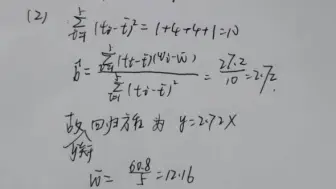 (2) \sum_{i=1}^{5} (t_i-\bar{t})^2 = 1+4+4+1=10
\hat{b} = \frac{\sum_{i=1}^{5} (t_i-\bar{t})(w_i-\bar{w})}{\sum_{i=1}^{5} (t_i-\bar{t})^2} = \frac{27.2}{10} = 2.72
故 回归方程 为 y=2.72x
\bar{w} = \frac{60.8}{5} = 12.16